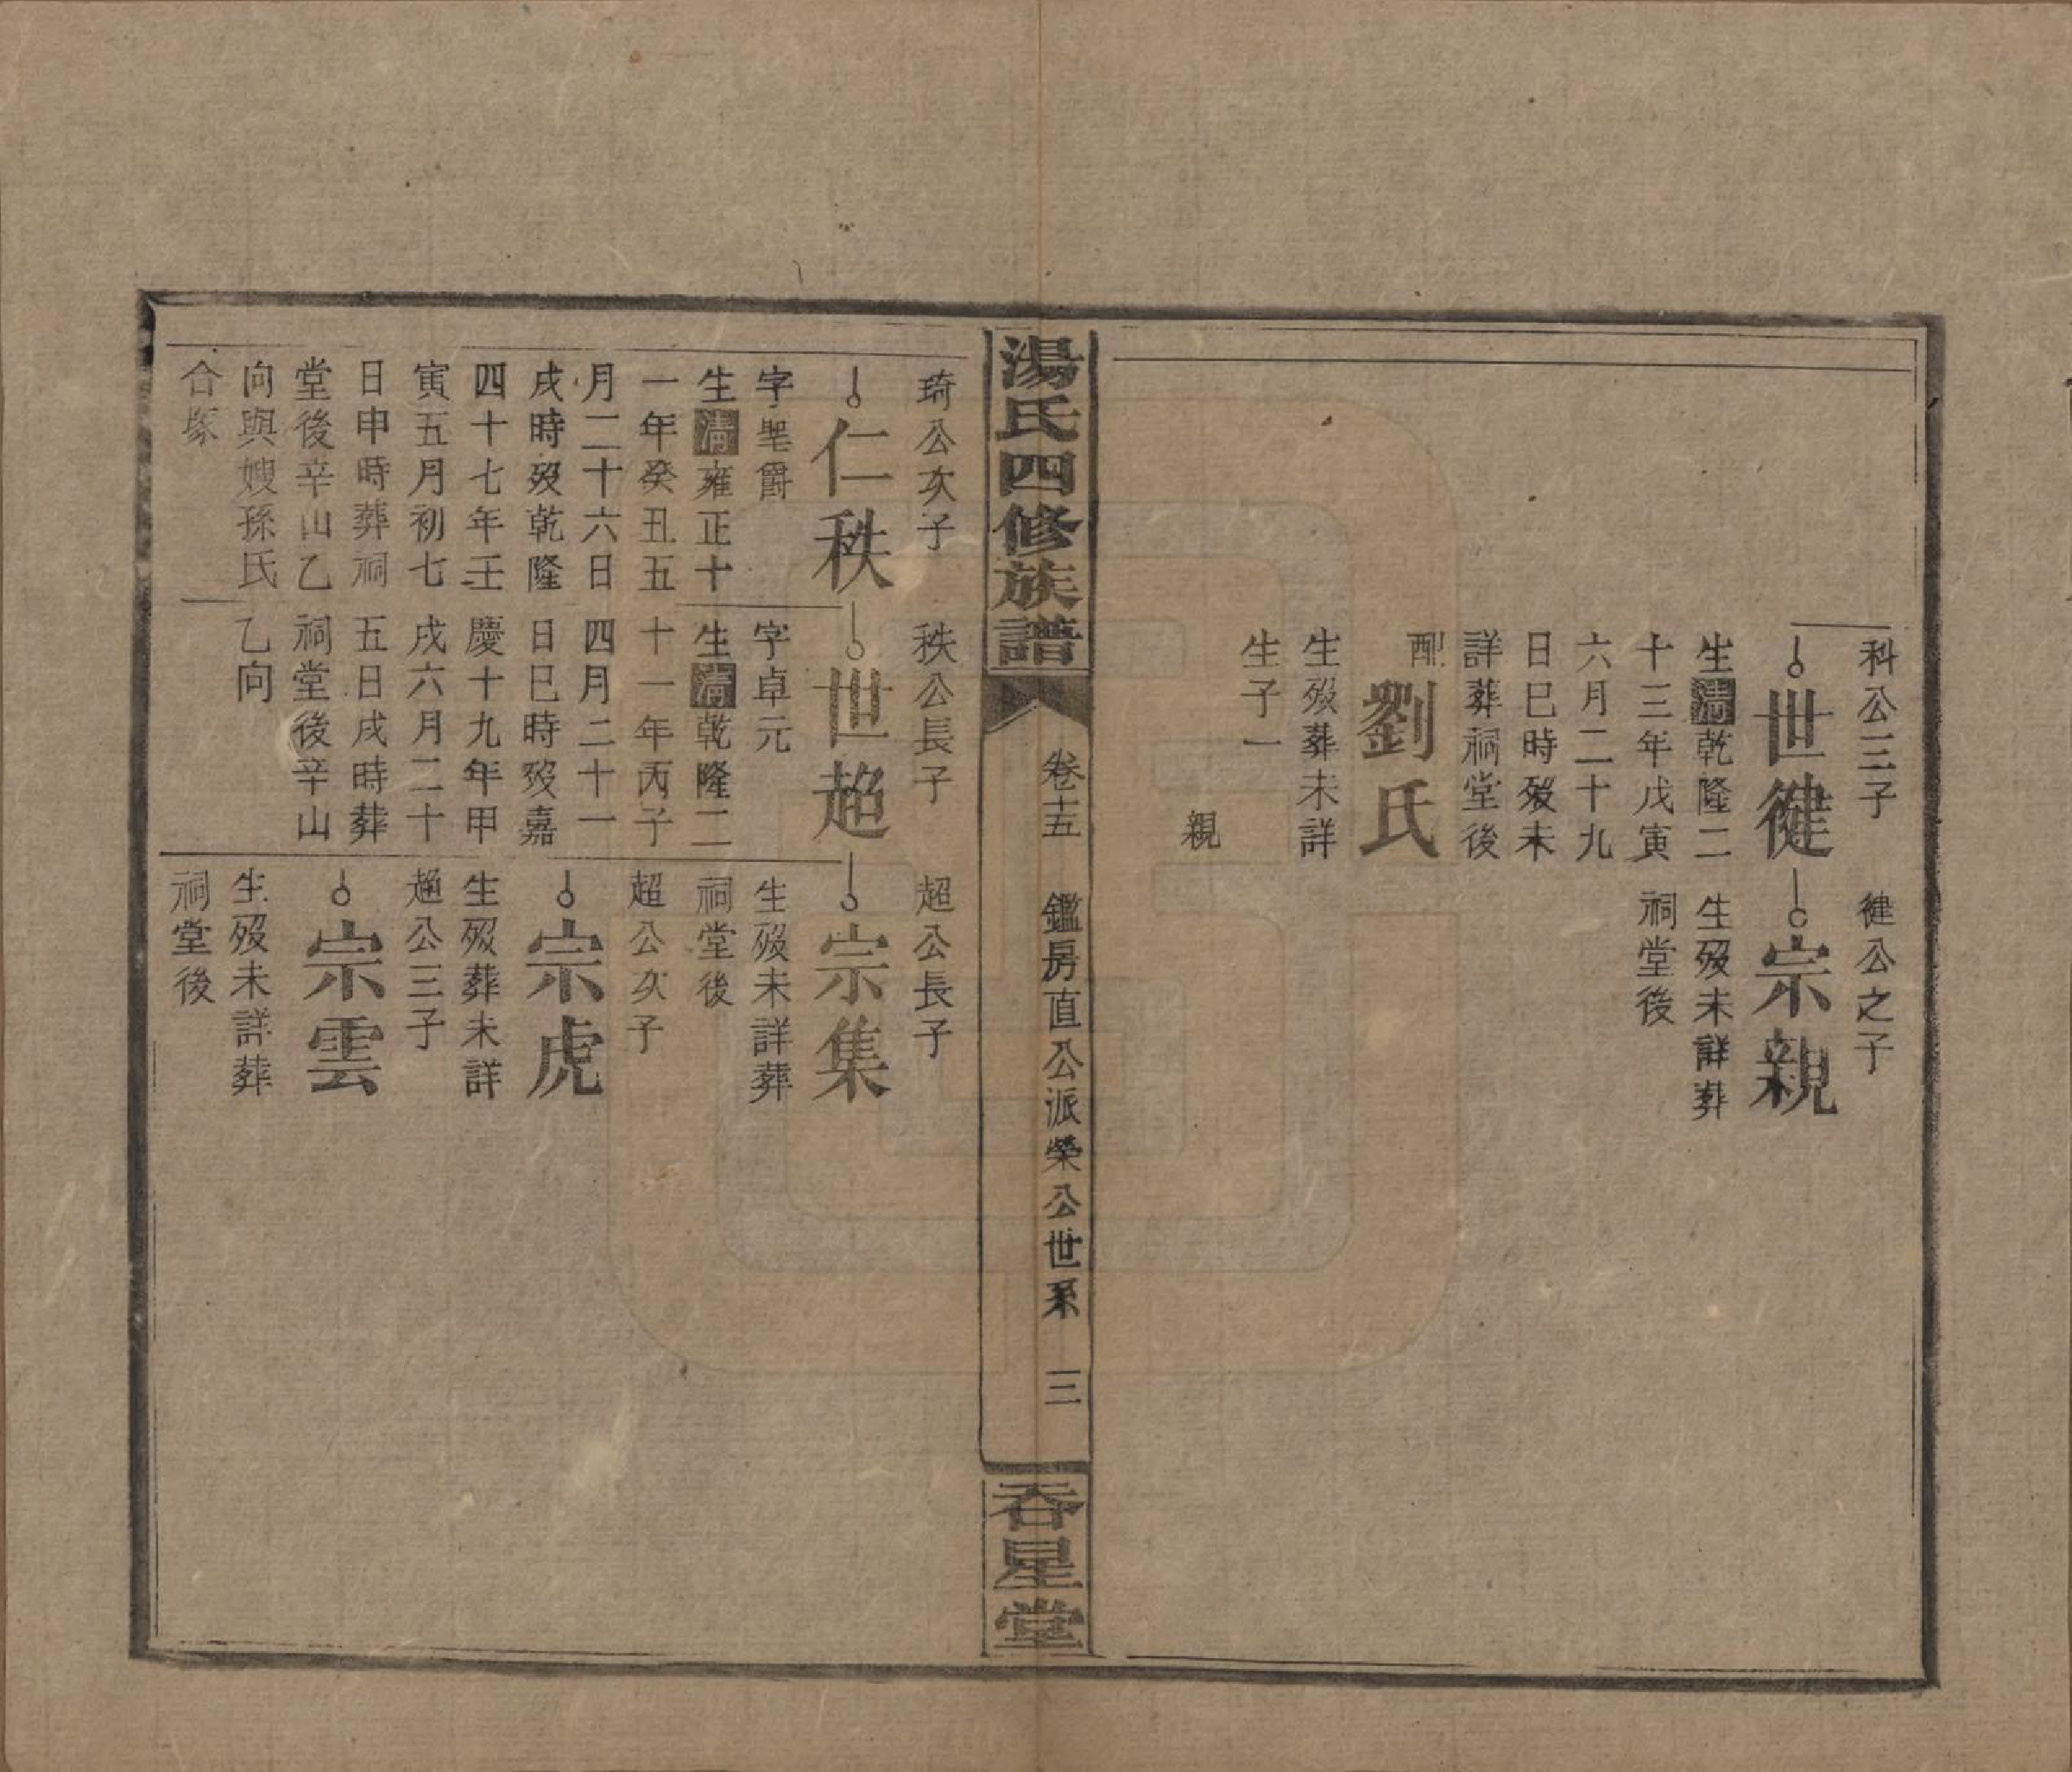 科公三子
世徤
生清乾隆二
十三年戊寅
六月二十九
日巳時歿未
詳葬祠堂後
配
劉氏
生歿葬未詳
生子一
親
徤公之子
宗親
生歿未詳葬
祠堂後
湯氏四修族譜
卷十五
鑑房直公派榮公世系
三
吞星堂
琦公次子
仁秩
字 爵
生清雍正十
一年癸丑五
月二十六日
戌時歿乾隆
四十七年壬
寅五月初七
日申時葬祠
堂後辛山乙
向與嫂孫氏
合塚
秩公長子
世超
字卓元
生清乾隆二
十一年丙子
四月二十一
日巳時歿嘉
慶十九年甲
戌六月二十
五日戌時葬
祠堂後辛山
乙向
超公長子
宗集
生歿未詳葬
祠堂後
超公次子
宗虎
生歿葬未詳
超公三子
宗雲
生歿未詳葬
祠堂後